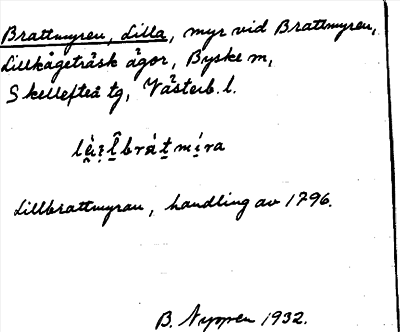 Brattmyren, Lilla, myr vid Brattmyren,
Lillkågeträsk ägor, Byske sn,
Skellefteå tg, Västerb. l.
Lillbrattmyran, handling av 1796.
B. 1932.